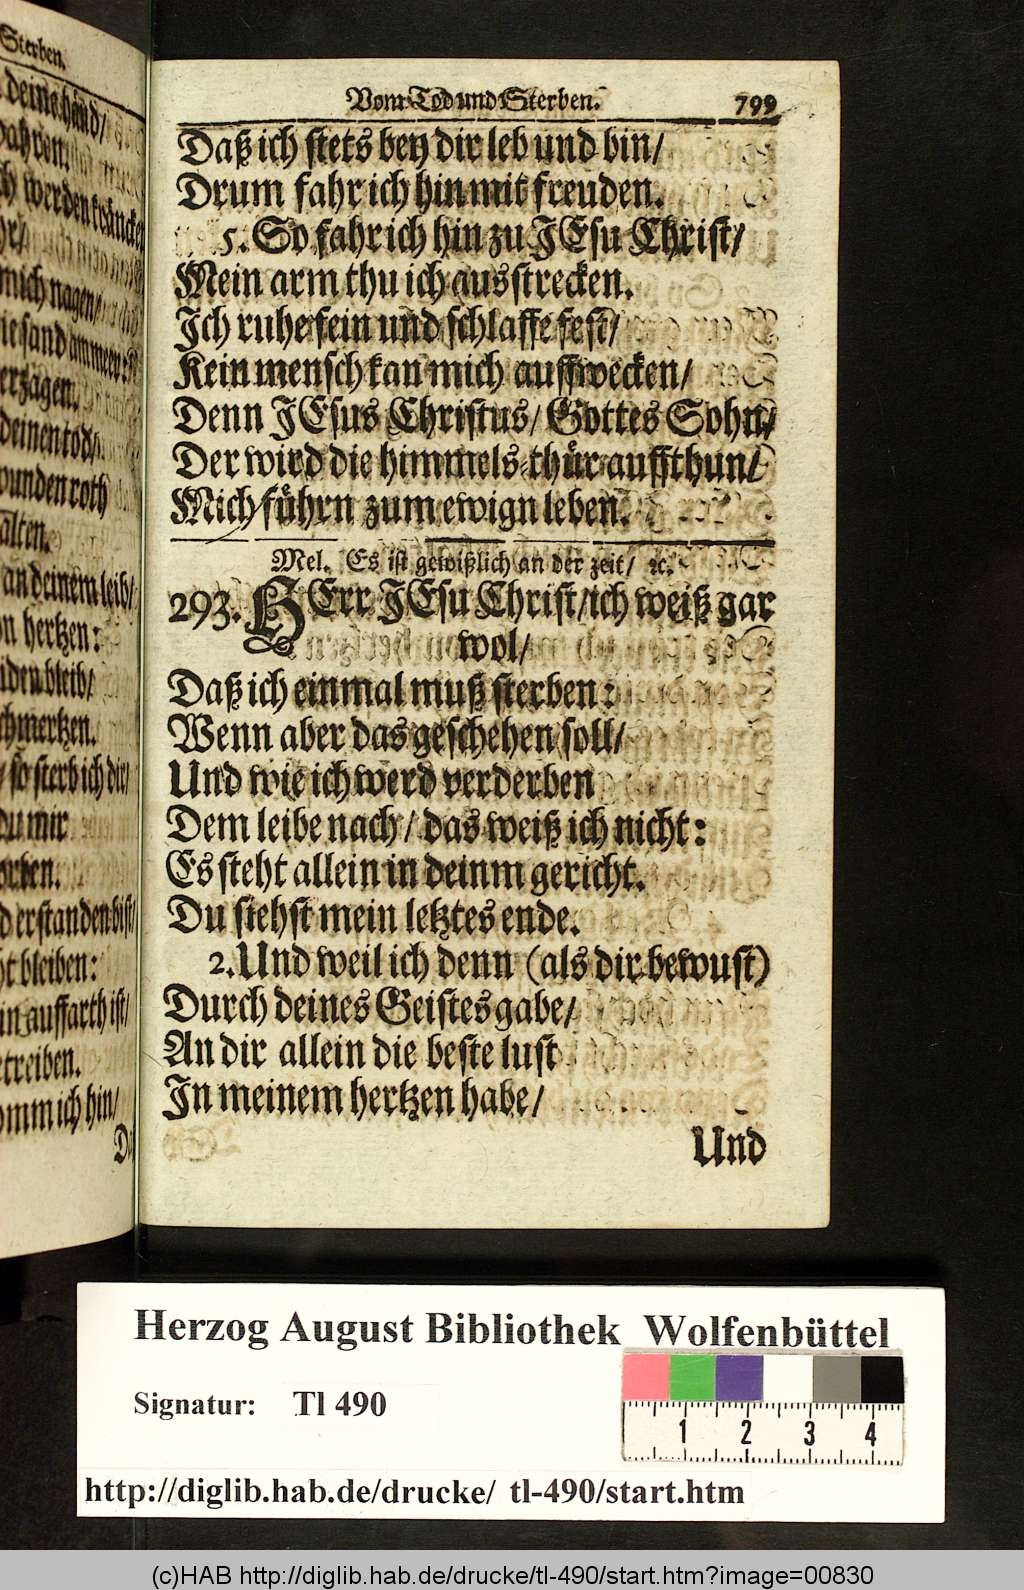 Sterben.
deine händ/
jahren.
werden kräncken
mich nagen/
sand am meer:
verzagen.
deinen tod/
wunden roth
an deinem leib/
hertzen:
bleib/
schmertzen.
so sterb ich dir/
du mir
erstanden bist/
bleiben:
auffarth ist/
ich hin/
Vom Tod und Sterben. 799
Daß ich stets bey dir leb und bin/
Drum fahr ich hin mit freuden.
5. So fahr ich hin zu JEsu Christ/
Mein arm thu ich ausstrecken.
Ich ruhe fein und schlaffe fest/
Kein mensch kan mich auffwecken/
Denn JEsus Christus/ Gottes Sohn/
Der wird die himmels-thür auffthun/
Mich führn zum ewign leben.
Mel. Es ist gewißlich an der zeit/ ꝛc.
293. HErr JEsu Christ/ ich weiß gar
wol/
Daß ich einmal muß sterben:
Wenn aber das geschehen soll/
Und wie ich werd verderben
Dem leibe nach/ das weiß ich nicht:
Es steht allein in deinm gericht.
Du siehst mein letztes ende.
2. Und weil ich denn (als dir bewust)
Durch deines Geistes gabe/
An dir allein die beste lust
In meinem hertzen habe/
Und
Herzog August Bibliothek Wolfenbüttel
Signatur: Tl 490
1 2 3 4
http://diglib.hab.de/drucke/ tl-490/start.htm
(c)HAB http://diglib.hab.de/drucke/tl-490/start.htm?image=00830